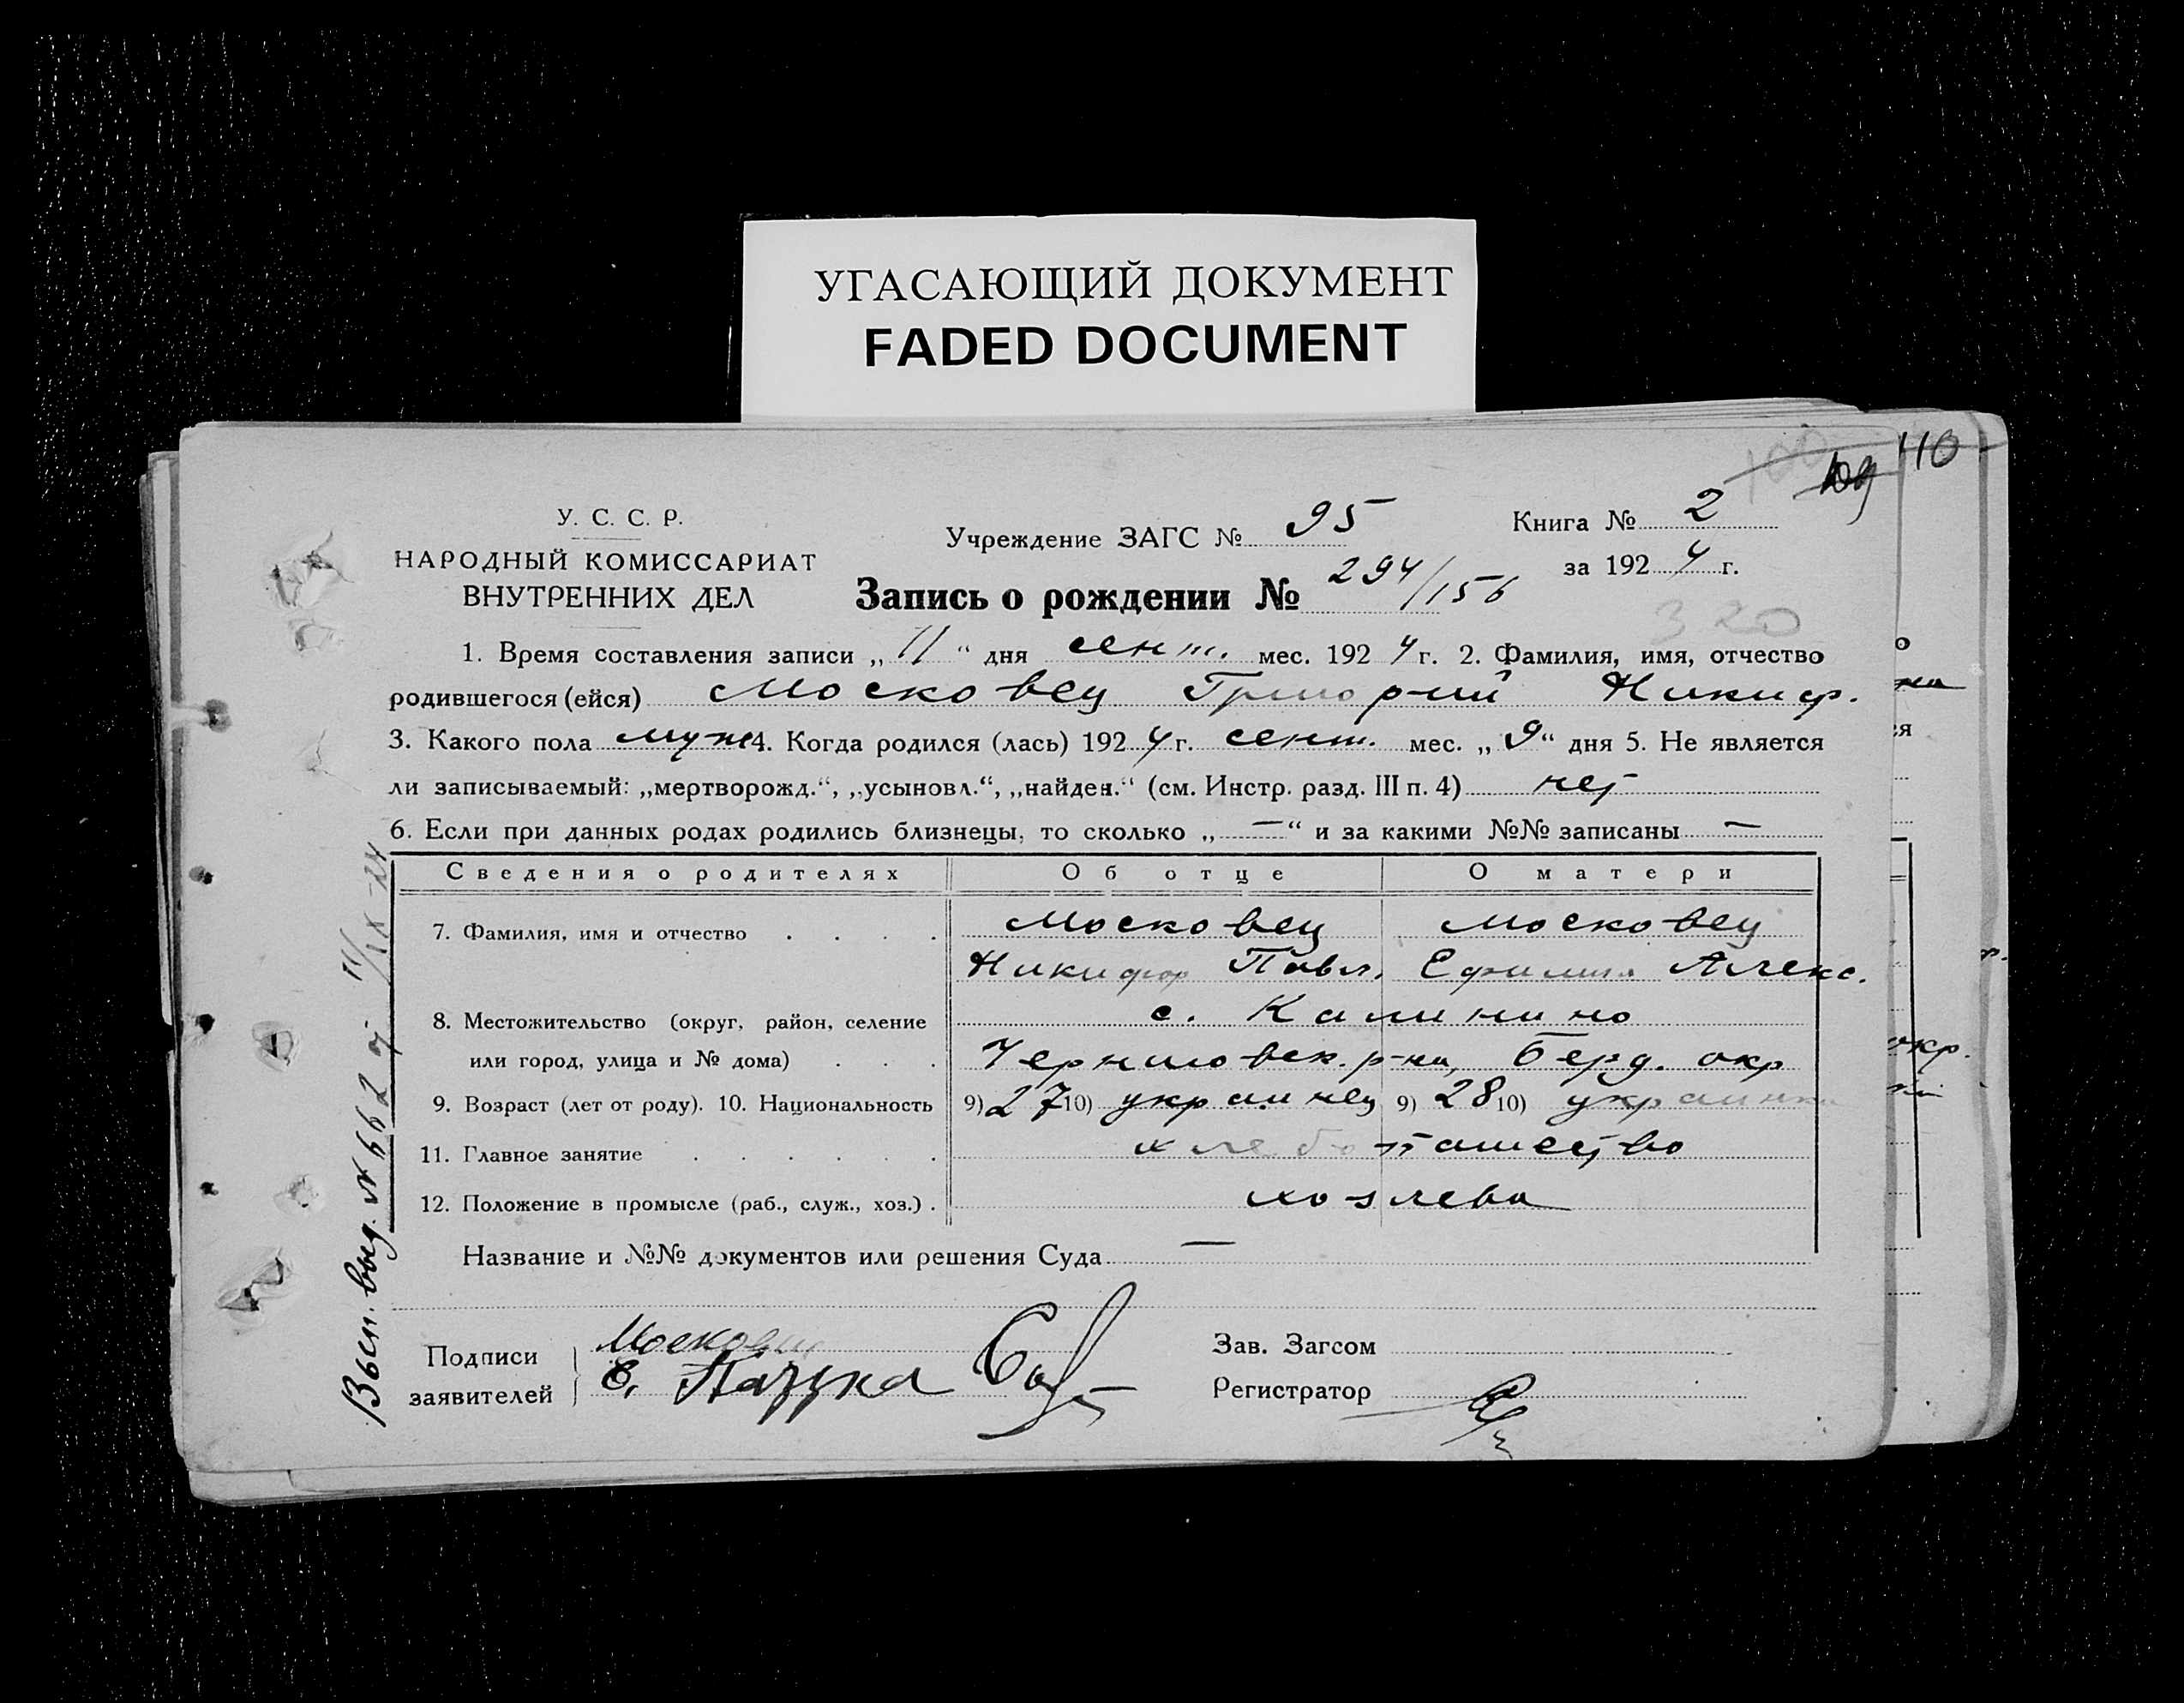 УГАСАЮЩИЙ ДОКУМЕНТ
FADED DOCUMENT
110
109
У. С. С. Р.
НАРОДНЫЙ КОМИССАРИАТ
ВНУТРЕННИХ ДЕЛ
Учреждение ЗАГС № 95
Книга № 2
за 192 4 г.
Запись о рождении № 294/156
320
1. Время составления записи „ 11 “ дня сент. мес. 192 4 г. 2. Фамилия, имя, отчество
родившегося (ейся) Московец Григорий Никиф.
3. Какого пола муж 4. Когда родился (лась) 192 4 г. сент. мес. „ 9 “ дня 5. Не является
ли записываемый: „мертворожд.“, „усыновл.“, „найден.“ (см. Инстр. разд. III п. 4) нет
6. Если при данных родах родились близнецы, то сколько „ — “ и за какими №№ записаны —
Сведения о родителях Об отце О матери
7. Фамилия, имя и отчество . . . . Московец Московец
Никифор Павл. Ефимия Алекс.
8. Местожительство (округ, район, селение с. Калинино
или город, улица и № дома) . . . Черниговск. р-на, Берд. окр
9. Возраст (лет от роду). 10. Национальность 9) 27 10) украинец 9) 28 10) украинка
11. Главное занятие . . . . . . хлебопашество
12. Положение в промысле (раб., служ., хоз.) . хозяева
Название и №№ документов или решения Суда —
Подписи Московец
заявителей Е.
Зав. Загсом
Регистратор
Вып. выд. № 662 11/IX-24